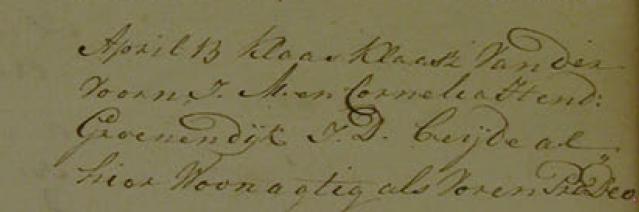 April 13 Klaas Klaasz Van der
Voorn J. M. en Cornelia Hend:
Groenendijk J. D. beijde al„
hier Woonagtig als Voren Pro Deo